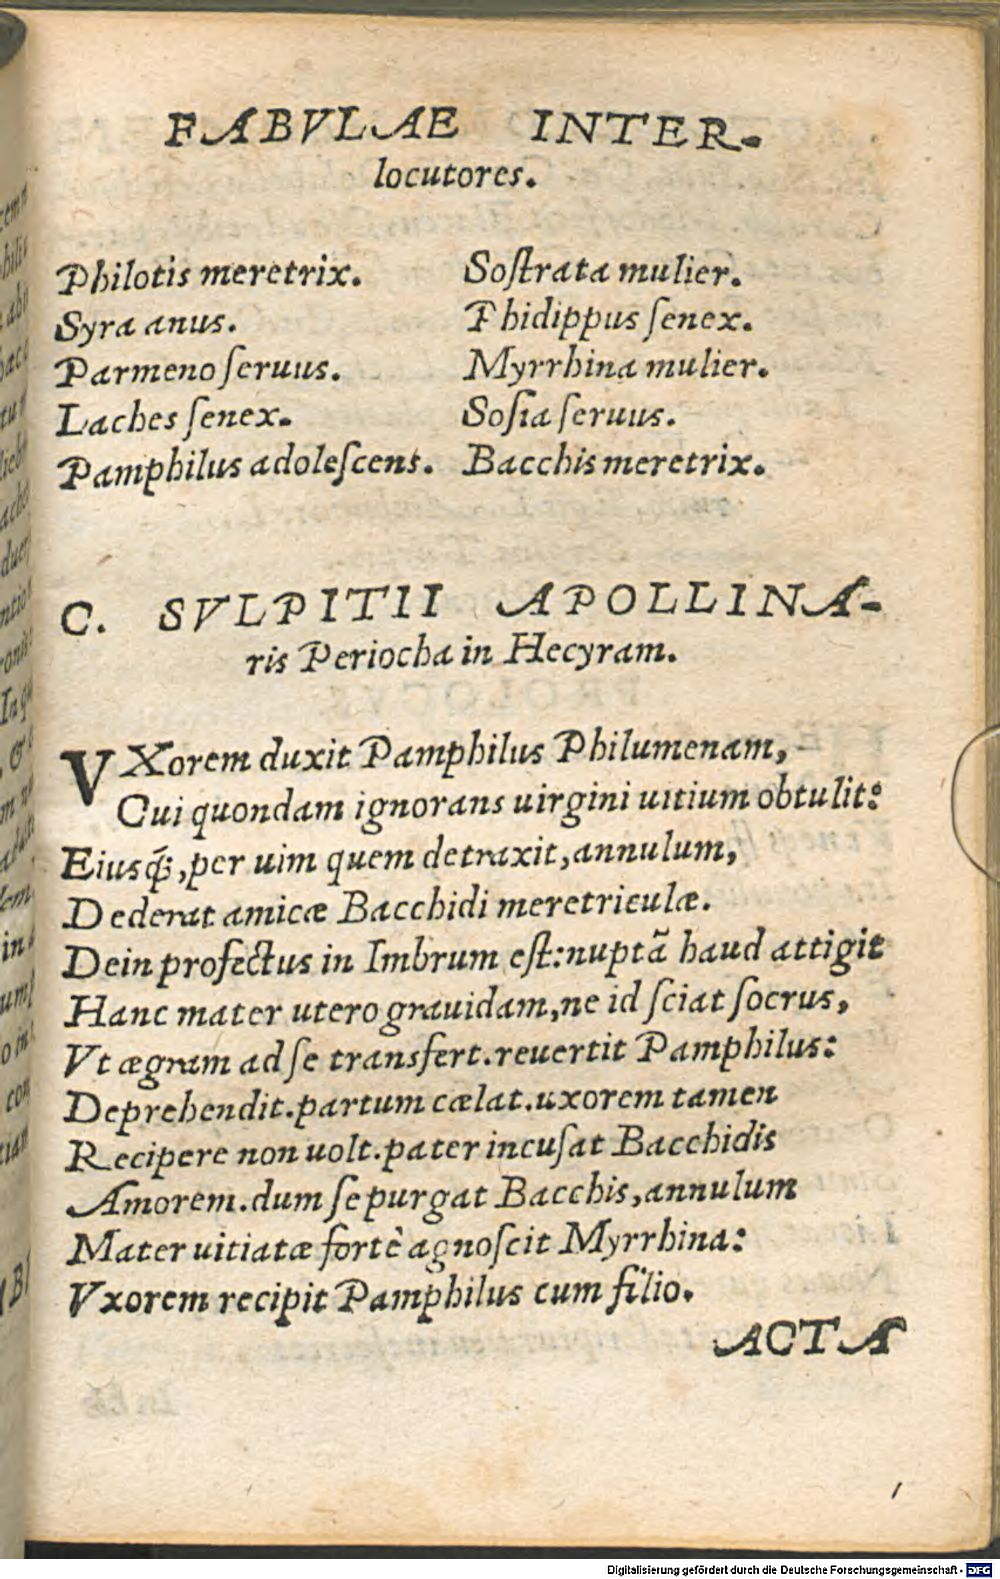 FABVLAE INTER-
locutores.
Philotis meretrix.
Syra anus.
Parmeno ſeruus.
Laches ſenex.
Pamphilus adoleſcens.
Soſtrata mulier.
Phidippus ſenex.
Myrrhina mulier.
Soſia ſeruus.
Bacchis meretrix.
C. SVLPITII APOLLINA-
ris Periocha in Hecyram.
VXorem duxit Pamphilus Philumenam,
Cui quondam ignorans uirgini uitium obtulit:
Eiusq́;, per uim quem detraxit, annulum,
Dederat amicæ Bacchidi meretriculæ.
Dein profectus in Imbrum eſt: nuptã haud attigit
Hanc mater utero grauidam, ne id ſciat ſocrus,
Vt ægram ad ſe transfert. reuertit Pamphilus:
Deprehendit. partum cælat. uxorem tamen
Recipere non uolt. pater incuſat Bacchidis
Amorem. dum ſe purgat Bacchis, annulum
Mater uitiatæ fortè agnoſcit Myrrhina:
Vxorem recipit Pamphilus cum filio.
ACTA
Digitalisierung gefördert durch die Deutsche Forschungsgemeinschaft - DFG